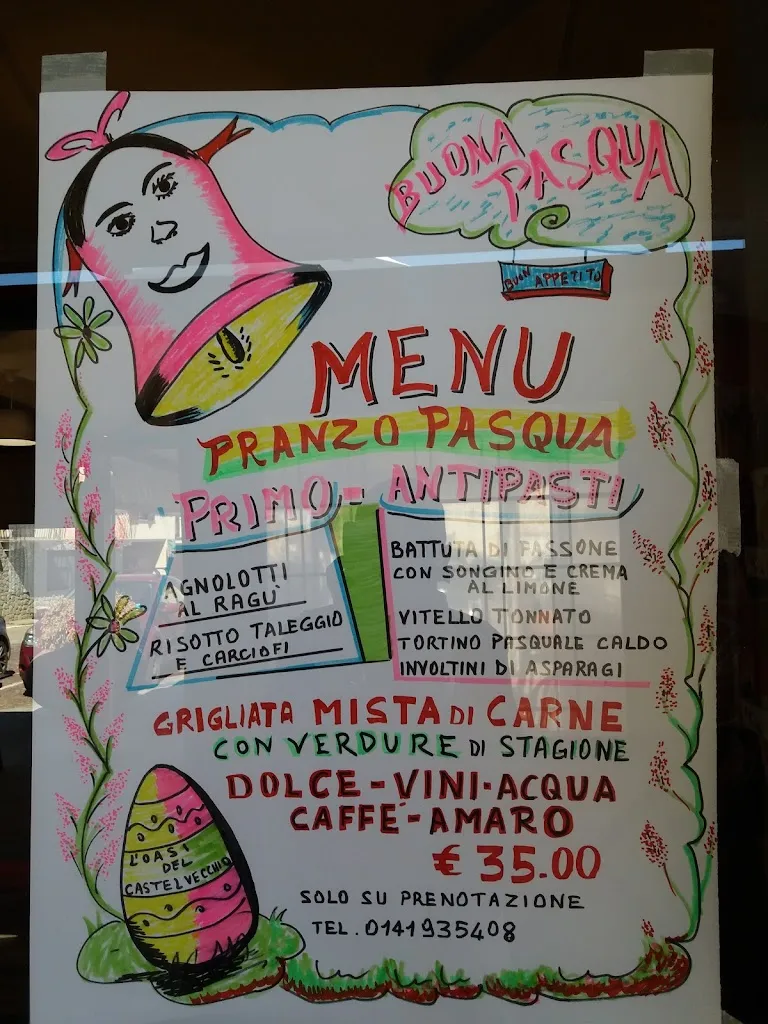 BUONA
PASQUA
BUON APPETITO
MENU
PRANZO PASQUA
PRIMO - ANTIPASTI
AGNOLOTTI
AL RAGU'
RISOTTO TALEGGIO
E CARCIOFI
BATTUTA DI FASSONE
CON SONGINO E CREMA
AL LIMONE
VITELLO TONNATO
TORTINO PASQUALE CALDO
INVOLTINI DI ASPARAGI
GRIGLIATA MISTA DI CARNE
CON VERDURE DI STAGIONE
DOLCE - VINI - ACQUA
CAFFE' - AMARO
€ 35.00
SOLO SU PRENOTAZIONE
TEL. 0141935408
L'OASI
DEL
CASTELVECCHIO